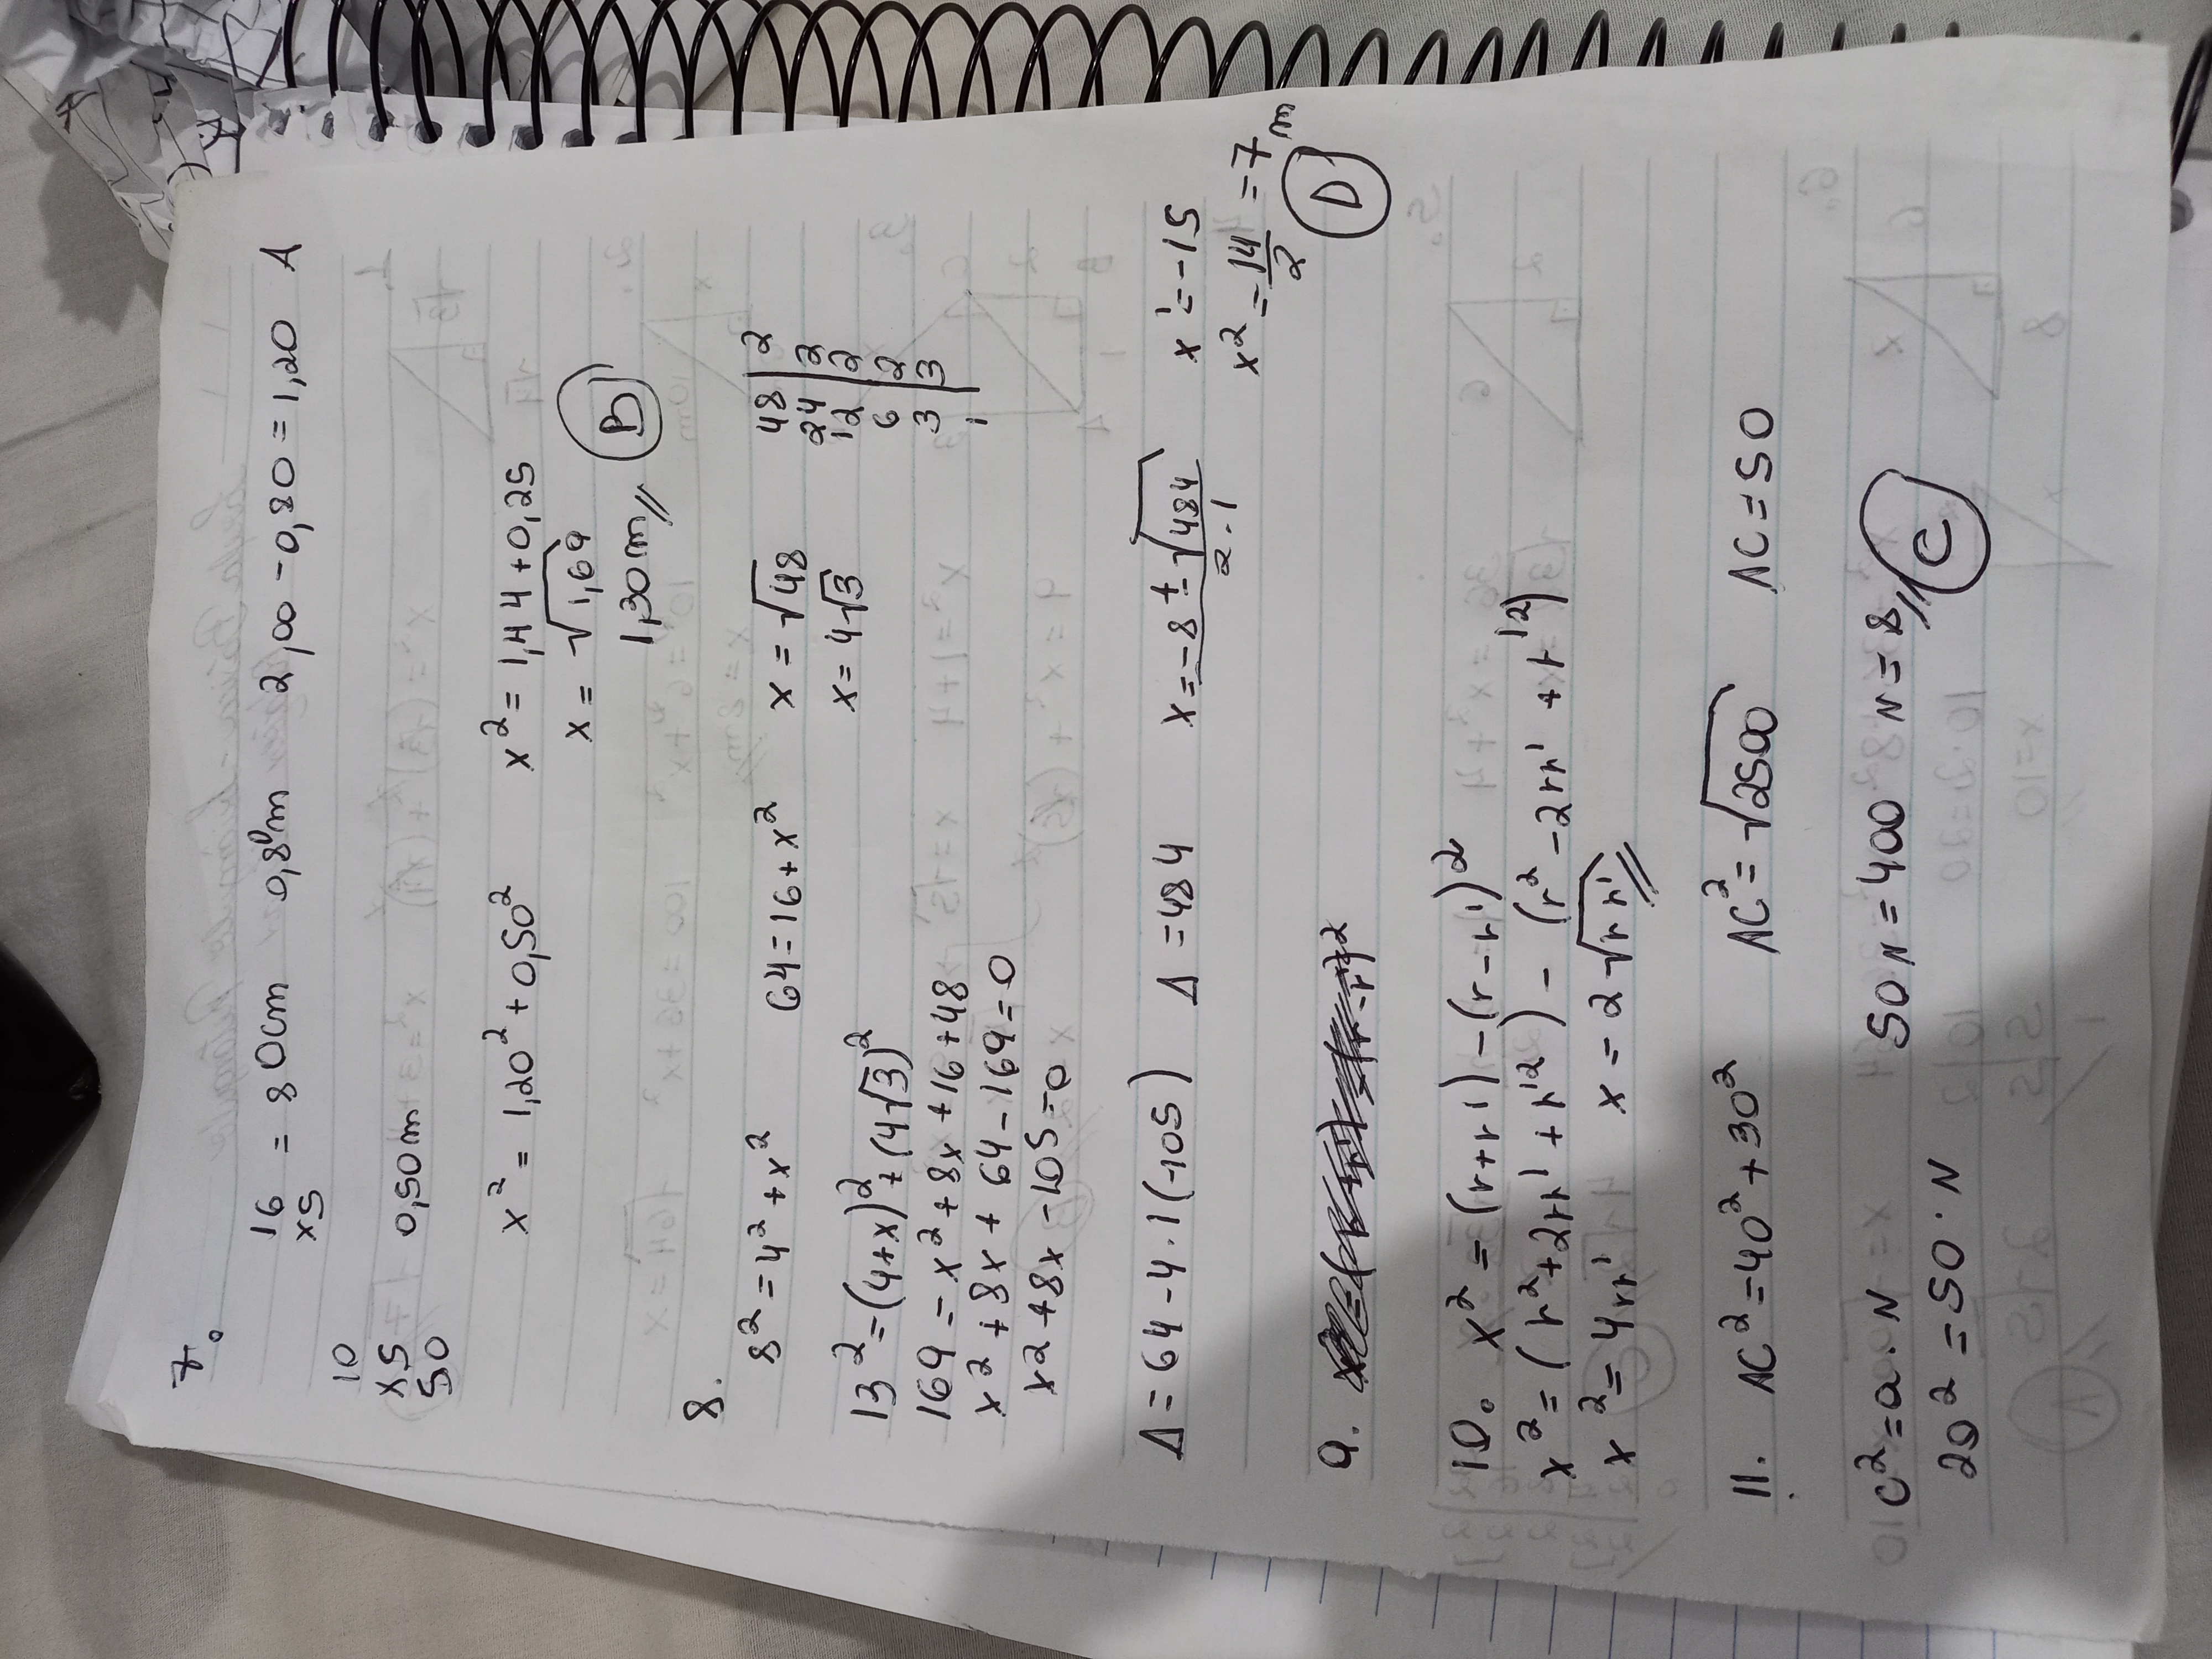 7.
16
x5 = 80cm 0,80m 2,00 - 0,80 = 1,20 A
10
x5
50 0,50m
x² = 1,20² + 0,50² x² = 1,44 + 0,25
x = √1,69
1,30m B
8.
8² = 4² + x² 64 = 16 + x² x = √48
x = 4√3
48 | 2
24 | 2
12 | 2
6 | 2
3 | 3
1
13² = (4+x)² + (4√3)²
169 = x² + 8x + 16 + 48
x² + 8x + 64 - 169 = 0
x2 + 8x - 105 = 0
Δ = 64 - 4 . 1 (-105) Δ = 484 x = -8 ± √484 / 2 . 1 x' = -15
x² = 14/2 = 7m
D
9.
10. x² = (r+r') - (r-r')²
x² = (r² + 2rr' + r'²) - (r² - 2rr' + r'²)
x² = 4rr' x = 2√rr'
11. AC² = 40² + 30² AC² = √2500 AC = 50
c² = a . N 50N = 400 N = 8 C
20² = 50 . N